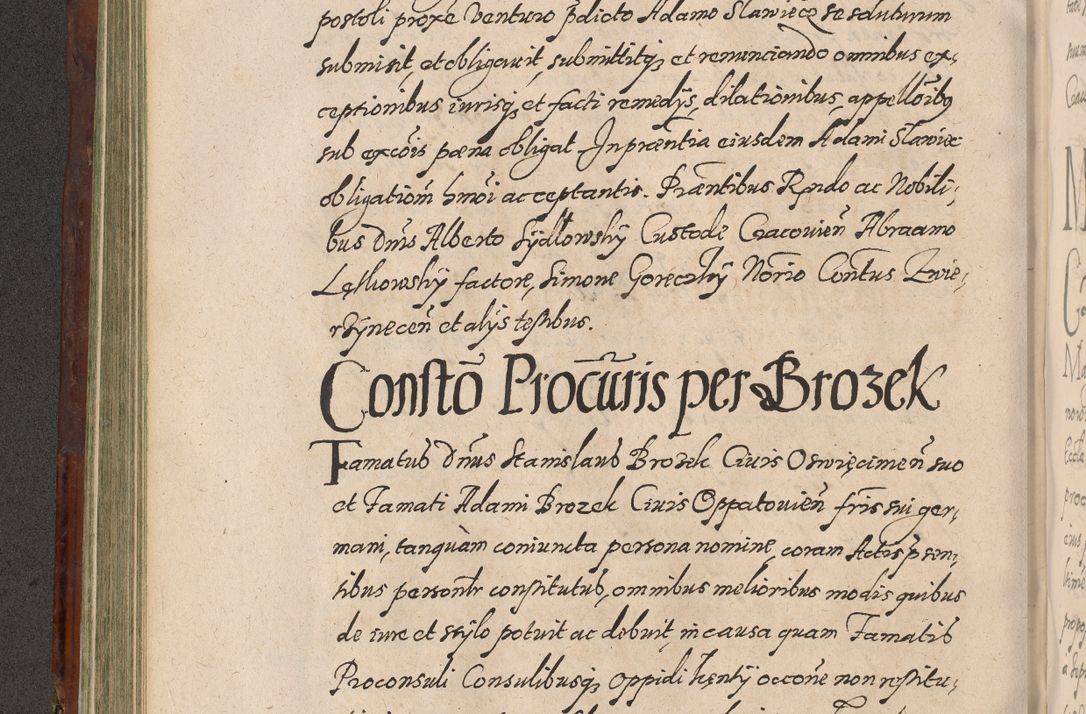 postoli proxe Venturo pdicto Adamo Slawiecz se soluturum
submisit, et obligauit, submittitq, et renunciando omnibus ex,
ceptionibus iurisq, et facti remedijs, dilationibus, appellõibq
sub excõis pæna obligat. In præntia eiusdem Adami Slawiec
obligationẽ hmõi acceptantis. Præntibus Rndo ac Nobili,
bus dnis Alberto Sydlowskÿ Custode Cracouien Abraamo
factore, Simone Goreczkÿ Norio Contus Zwie,
rzÿnecen et alÿs testibus.
Constõ Procuris per Brozek
Famatus dnus Stanislaus Brozek Ciuis Oswięcimen suo
et Famati Adami Brozek Ciuis Oppatouien fris sui ger,
mani, tanquàm coniuncta persona nomine, coram Actis psen,
tibus personlr constitutus, omnibus melioribus modis quibus
de iure et stylo potuit ac debuit, in causa quam Famatis
Proconsuli Consulibusq, Oppidi Kęntÿ occone non restitu,